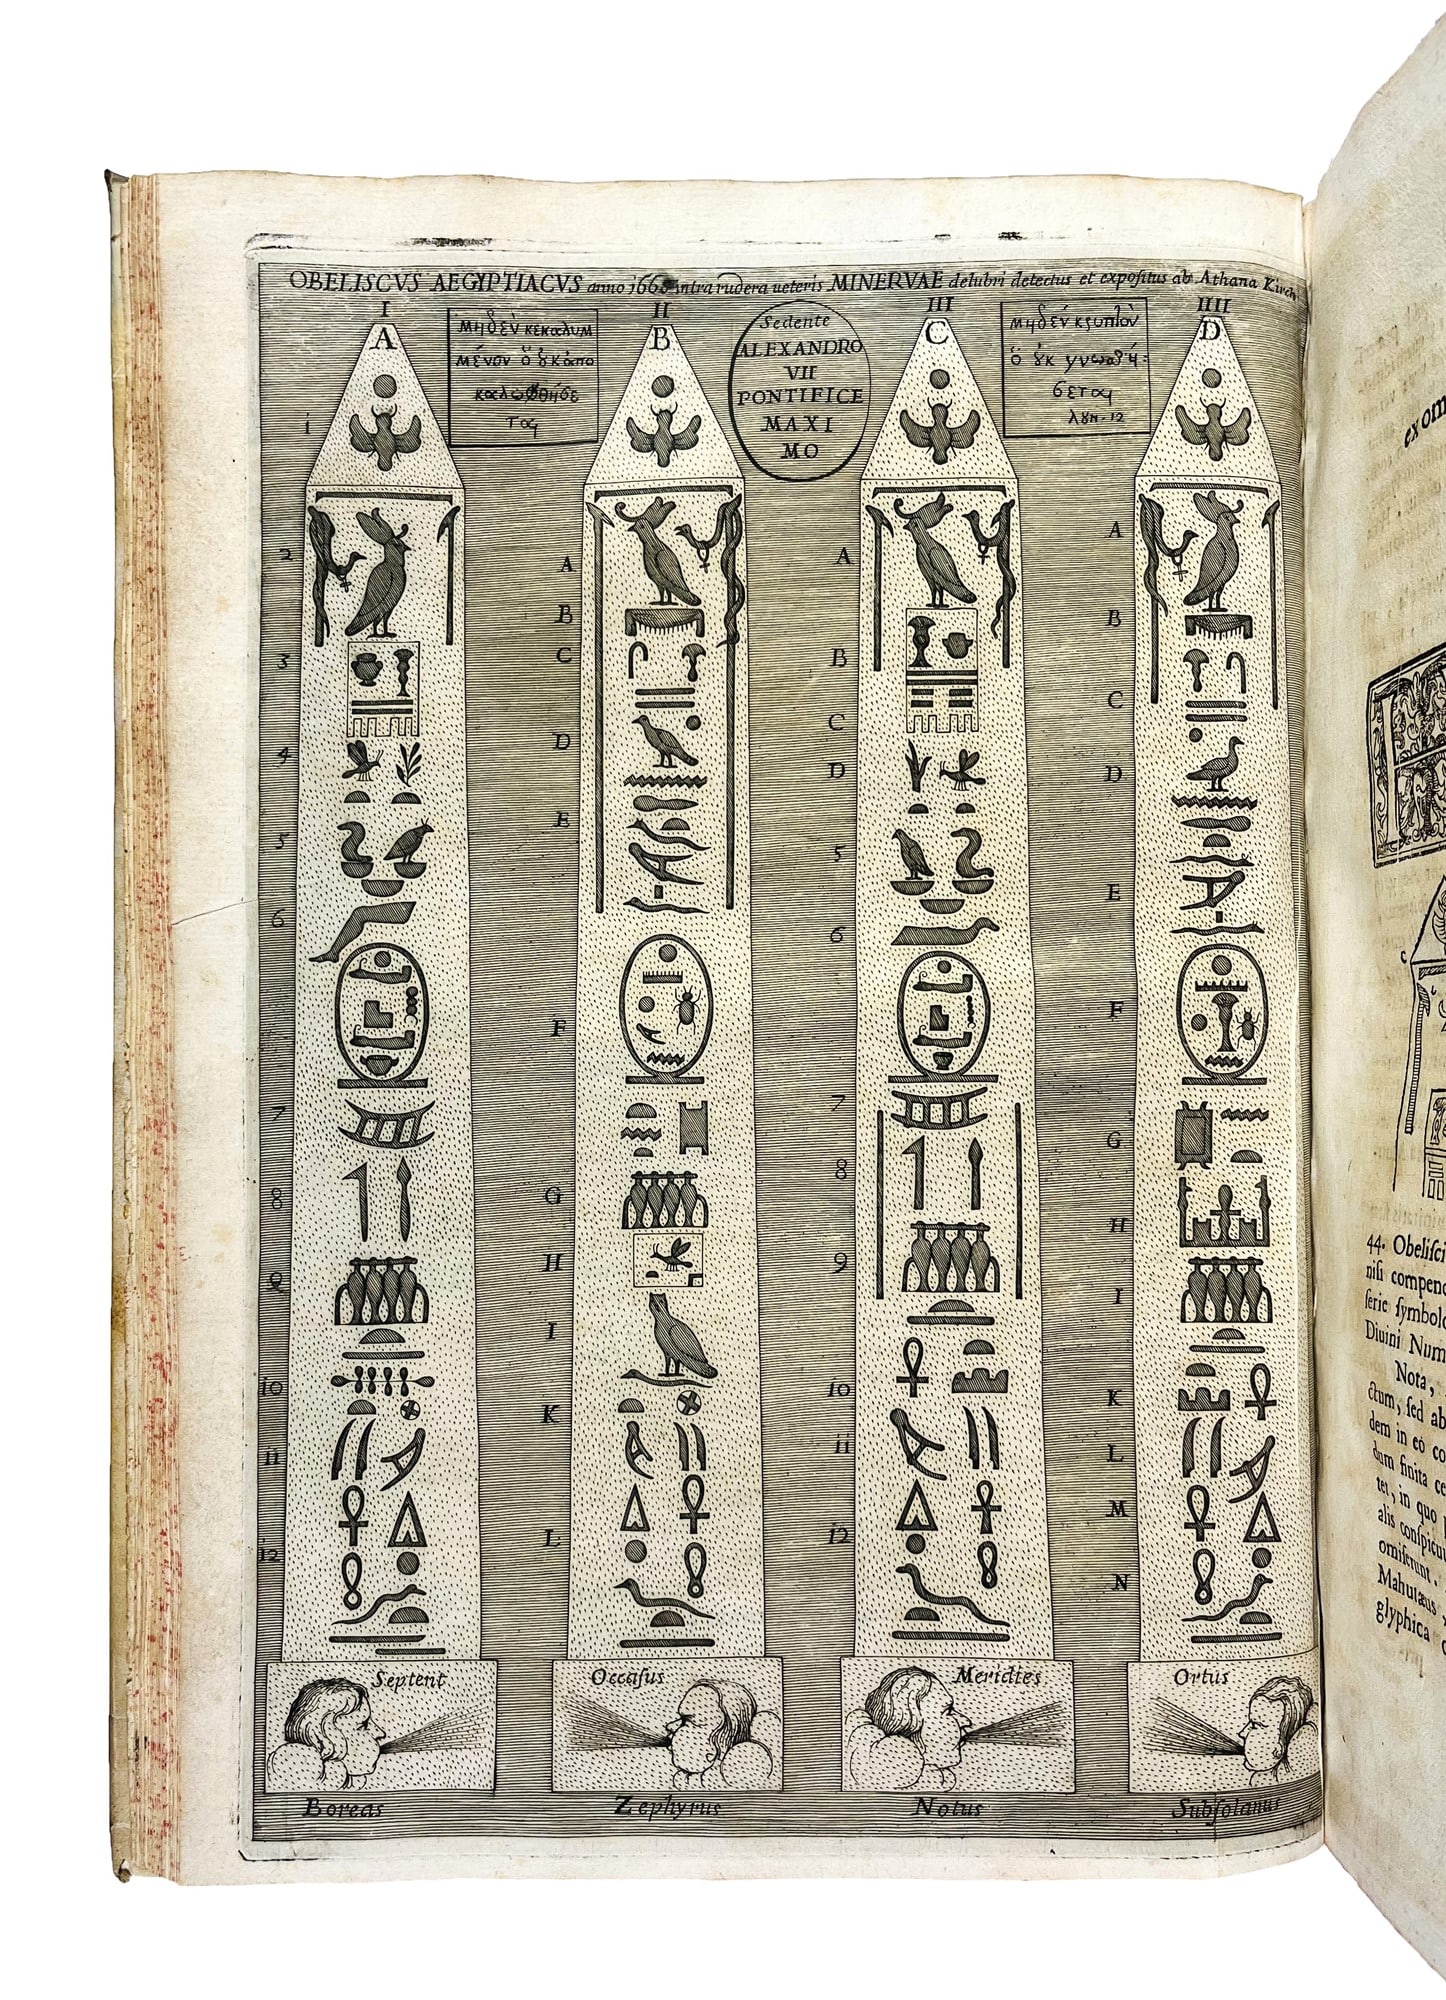 OBELISCVS AEGYPTIACVS anno 166 intra rudera veteris MINERVAE delubri detectus et expositus ab Athana Kirch
I
II
III
IIII
A
B
C
D
μηδεν κεκαλυμ
μένον ὃ ȣκ ἀπο
καλυφθήσε
ται
Sedente
ALEXANDRO
VII
PONTIFICE
MAXI
MO
μηδεν κρυπτὸν
ὃ ȣκ γνωσθή:
σεται
λȣκ·12
1
2
3
4
5
6
7
8
9
10
11
12
A
B
C
D
E
F
G
H
I
K
L
A
B
C
D
5
6
7
8
9
10
11
12
A
B
C
D
E
F
G
H
I
K
L
M
N
Septent
Occasus
Meridies
Ortus
Boreas
Zephyrus
Notus
Subsolanus
ex om
C
44. Obeliſci
niſi compend
ſerie ſymbolo
Diuini Num
Nota,
ctum, ſed ab
dem in eo co
dum finita ce
tet, in quo
alis conſpicuu
omiſerunt.
Mahutæus
glyphica